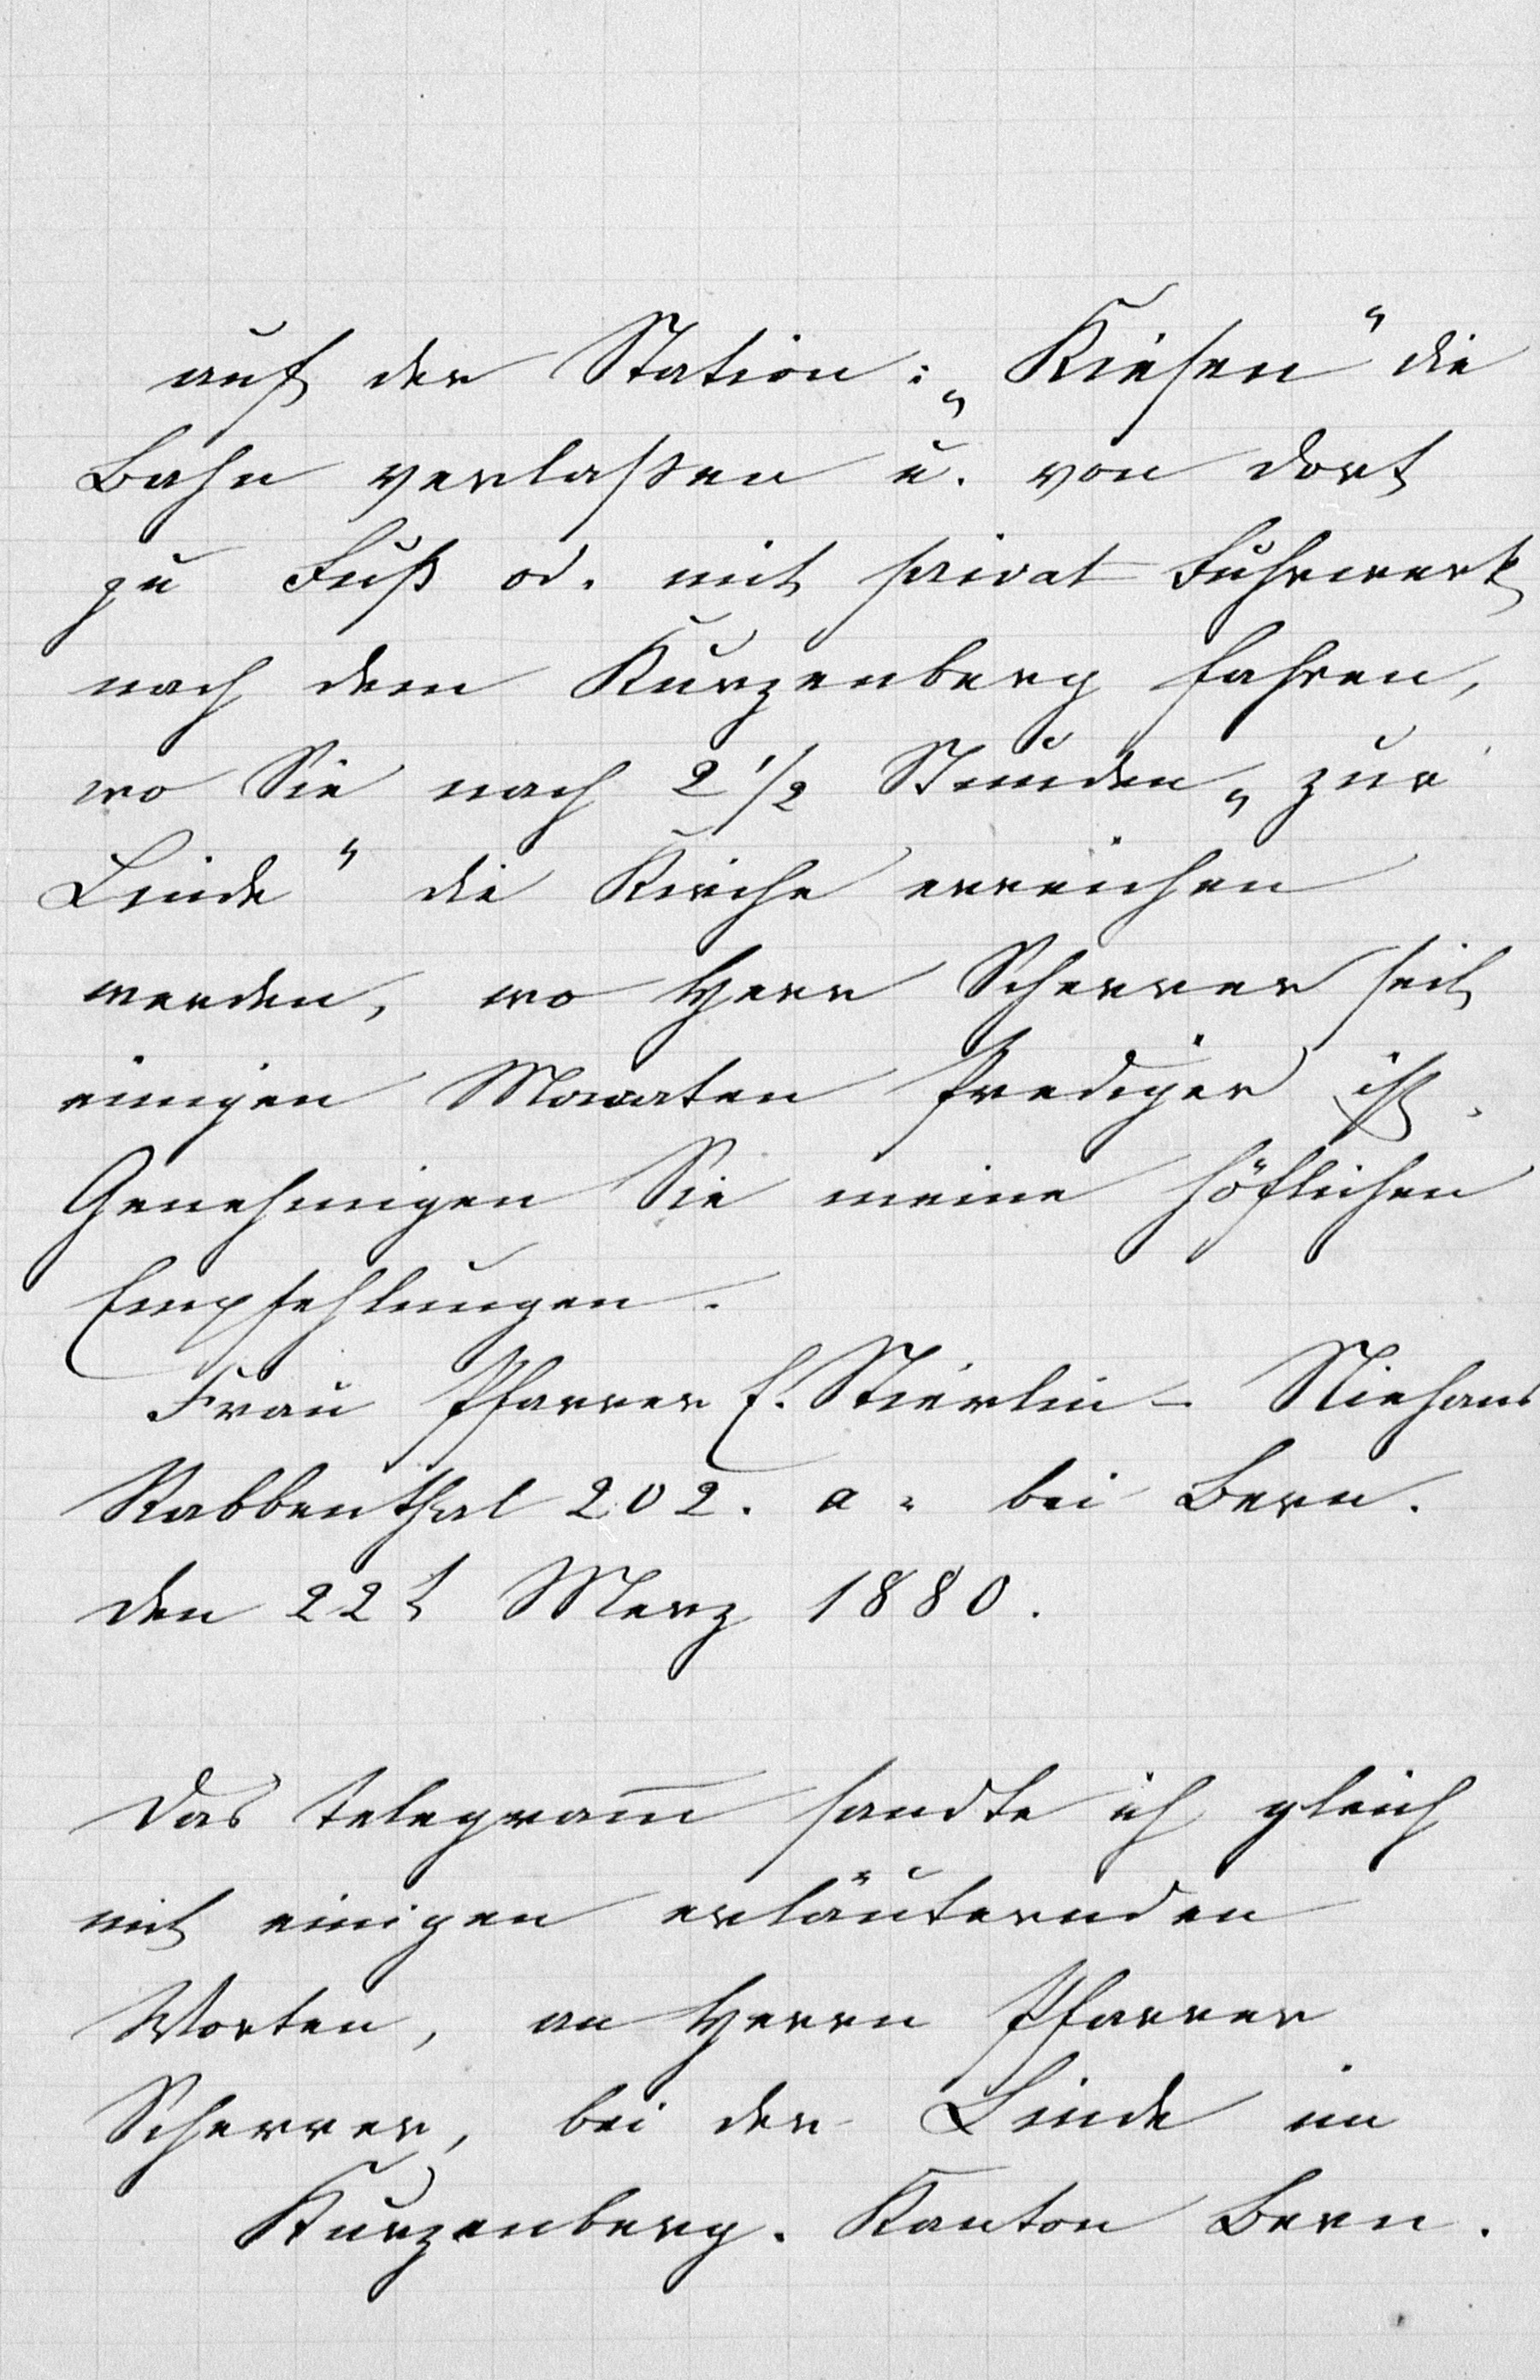 auf der Station: „Kiesen" die
Bahn verlaßen u. von dort
zu Fuß od. mit privat Fuhrwerk
nach dem Kurzenberg fahren,
wo Sie nach 2 1/2 Stunden „zur
Linde" die Kirche erreichen
werden, wo Herr Scherrer seit
einigen Monaten Prediger ist.
Genehmigen Sie meine höflichen
Empfehlungen.
Frau Pfarrer E. Stierlin - Niehans
Rabbenthal 202. a. bei Bern.
den 22t Merz 1880.
Das Telegram̅ sandte ich gleich
mit einigen erläuternden
Worten, an Herrn Pfarrer
Scherrer, bei der Linde im
Kurzenberg. Kanton Bern.